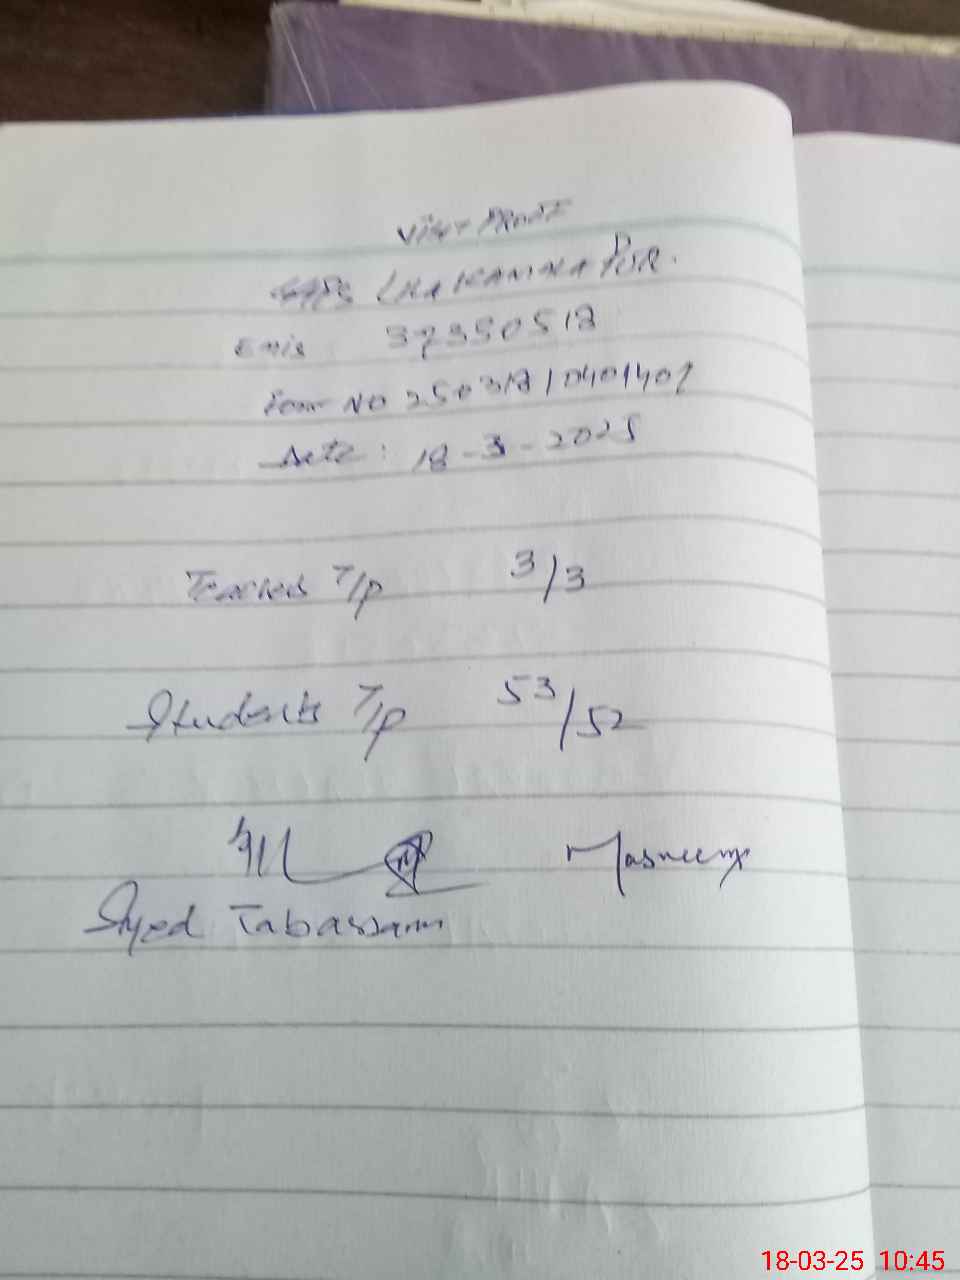 Visit PROOF
GGPS CHAKAMKAPUR.
Emis 37350518
Form NO 25031810401401
Date: 18-3-2025
Teachers T/P 3/3
Students T/P 53/52
Syed Tabassam
18-03-25 10:45